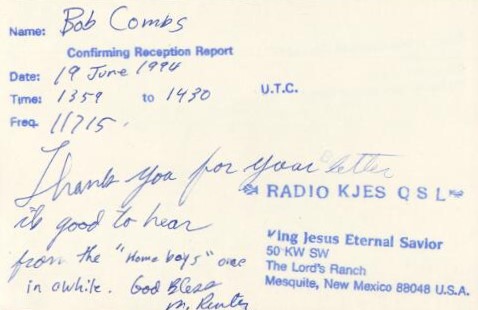 Name: Bob Combs
Confirming Reception Report
Date: 19 June 1994
Time: 1359 to 1430 U.T.C.
Freq. 11715.
Thank you for your letter
RADIO KJES QSL
it's good to hear
from the "Home boys" once
in awhile. God Bless
King Jesus Eternal Savior
50 KW SW
The Lord's Ranch
Mesquite, New Mexico 88048 U.S.A.